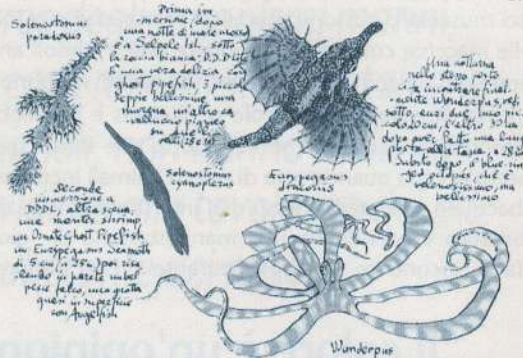 Solenostomus
paradoxus
Prima im-
mersione, dopo
una notte di mare mosso
è a Selpele Isl. sotto
la roccia bianca: D.D.D.
è una vera delizia, con
ghost pipefish, 3 piccole
seppie bellissime, una
murena, un altro ca-
Solenostomus
cyanopterus
Eurypegasus
draconis
Una notturna
nello stesso porto
fa incontrare final-
mente Wunderpus, nel
sotto, anzi due, uno pic-
colo 20 cm. l'altro il
doppio. Fatto una lunga
posta alla tana, a 28
Subito dopo, è blue rin-
ged octopus, che è
velenosissimo, ma
bellissimo
Seconda
immersione a
DDD, all'acqua,
un Ornate Ghost Pipefish,
un Eurypegasus seamoth
di 5 cm a 25 m poi risa-
lendo in parete un bel
pesce falco, una grotta
quasi in superficie
con Angelfish
Wunderpus